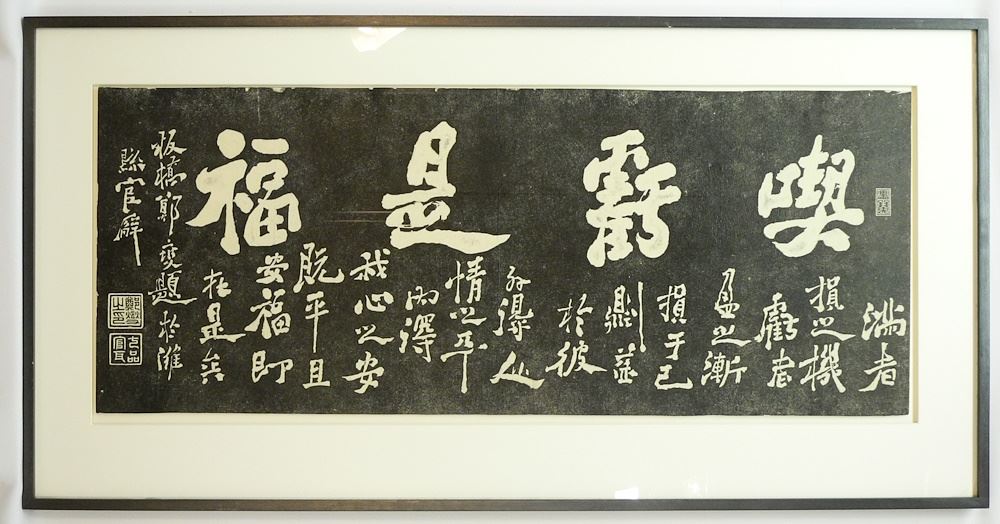 喫虧是福
滿者
損之機
虧者
盈之漸
損于己
則益
於彼
外得人
情之平
內得
我心之安
既平且
安福即
在是矣
板橋鄭燮題於濰
縣官廨
鄭燮之印
七品官耳